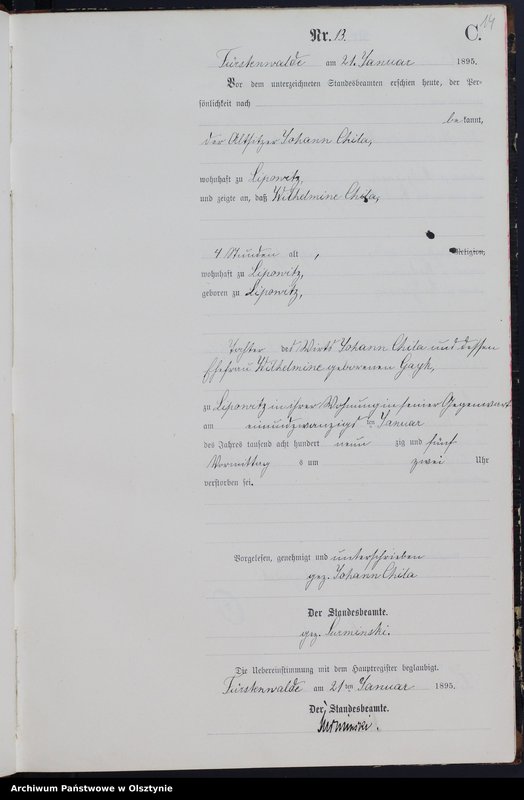 14
Nr. 13. C.
Fürstenwalde am 21. Januar 1895.
Vor dem unterzeichneten Standesbeamten erschien heute, der Per-
sönlichkeit nach
be kannt,
der Altsitzer Johann Chila,
wohnhaft zu Lipowitz,
und zeigte an, daß Wilhelmine Chila,
4 Stunden alt, Religion,
wohnhaft zu Lipowitz,
geboren zu Lipowitz,
Tochter des Wirts Johann Chila und dessen
Ehefrau Wilhelmine geborenen Gayk,
zu Lipowitz in ihrer Wohnung in seiner Gegenwart
am einundzwanzigsten Januar
des Jahres tausend acht hundert neun zig und fünf
Vormittag s um zwei Uhr
verstorben sei.
Vorgelesen, genehmigt und unterschrieben
gez. Johann Chila
Der Standesbeamte.
gez. Surminski.
Die Uebereinstimmung mit dem Hauptregister beglaubigt.
Fürstenwalde am 21ten Januar 1895.
Der Standesbeamte.
Surminski.
Archiwum Państwowe w Olsztynie